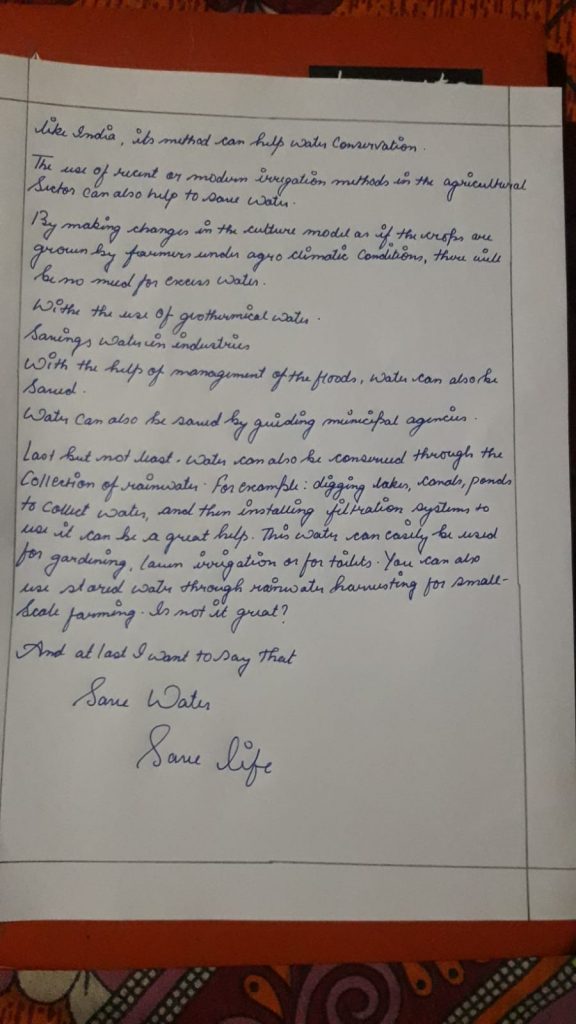 like India, its method can help water Conservation.
The use of recent or modern irrigation methods in the agricultural
Sector can also help to save water.
By making changes in the culture model as if the crops are
grown by farmers under agro climatic conditions, there will
be no need for excess water.
Withe the use of geothermical water.
Savings water in industries
With the help of management of the floods, water can also be
Saved.
Water can also be saved by guiding municipal agencies.
Last but not least. Water can also be conserved through the
Collection of rainwater. For example: digging lakes, canals, ponds
to collect water, and then installing filtration systems to
use it can be a great help. This water can easily be used
for gardening, lawn irrigation or for toilets. You can also
use stored water through rainwater harvesting for small-
Scale farming. Is not it great?
And at last I want to say that
Save Water
Save life